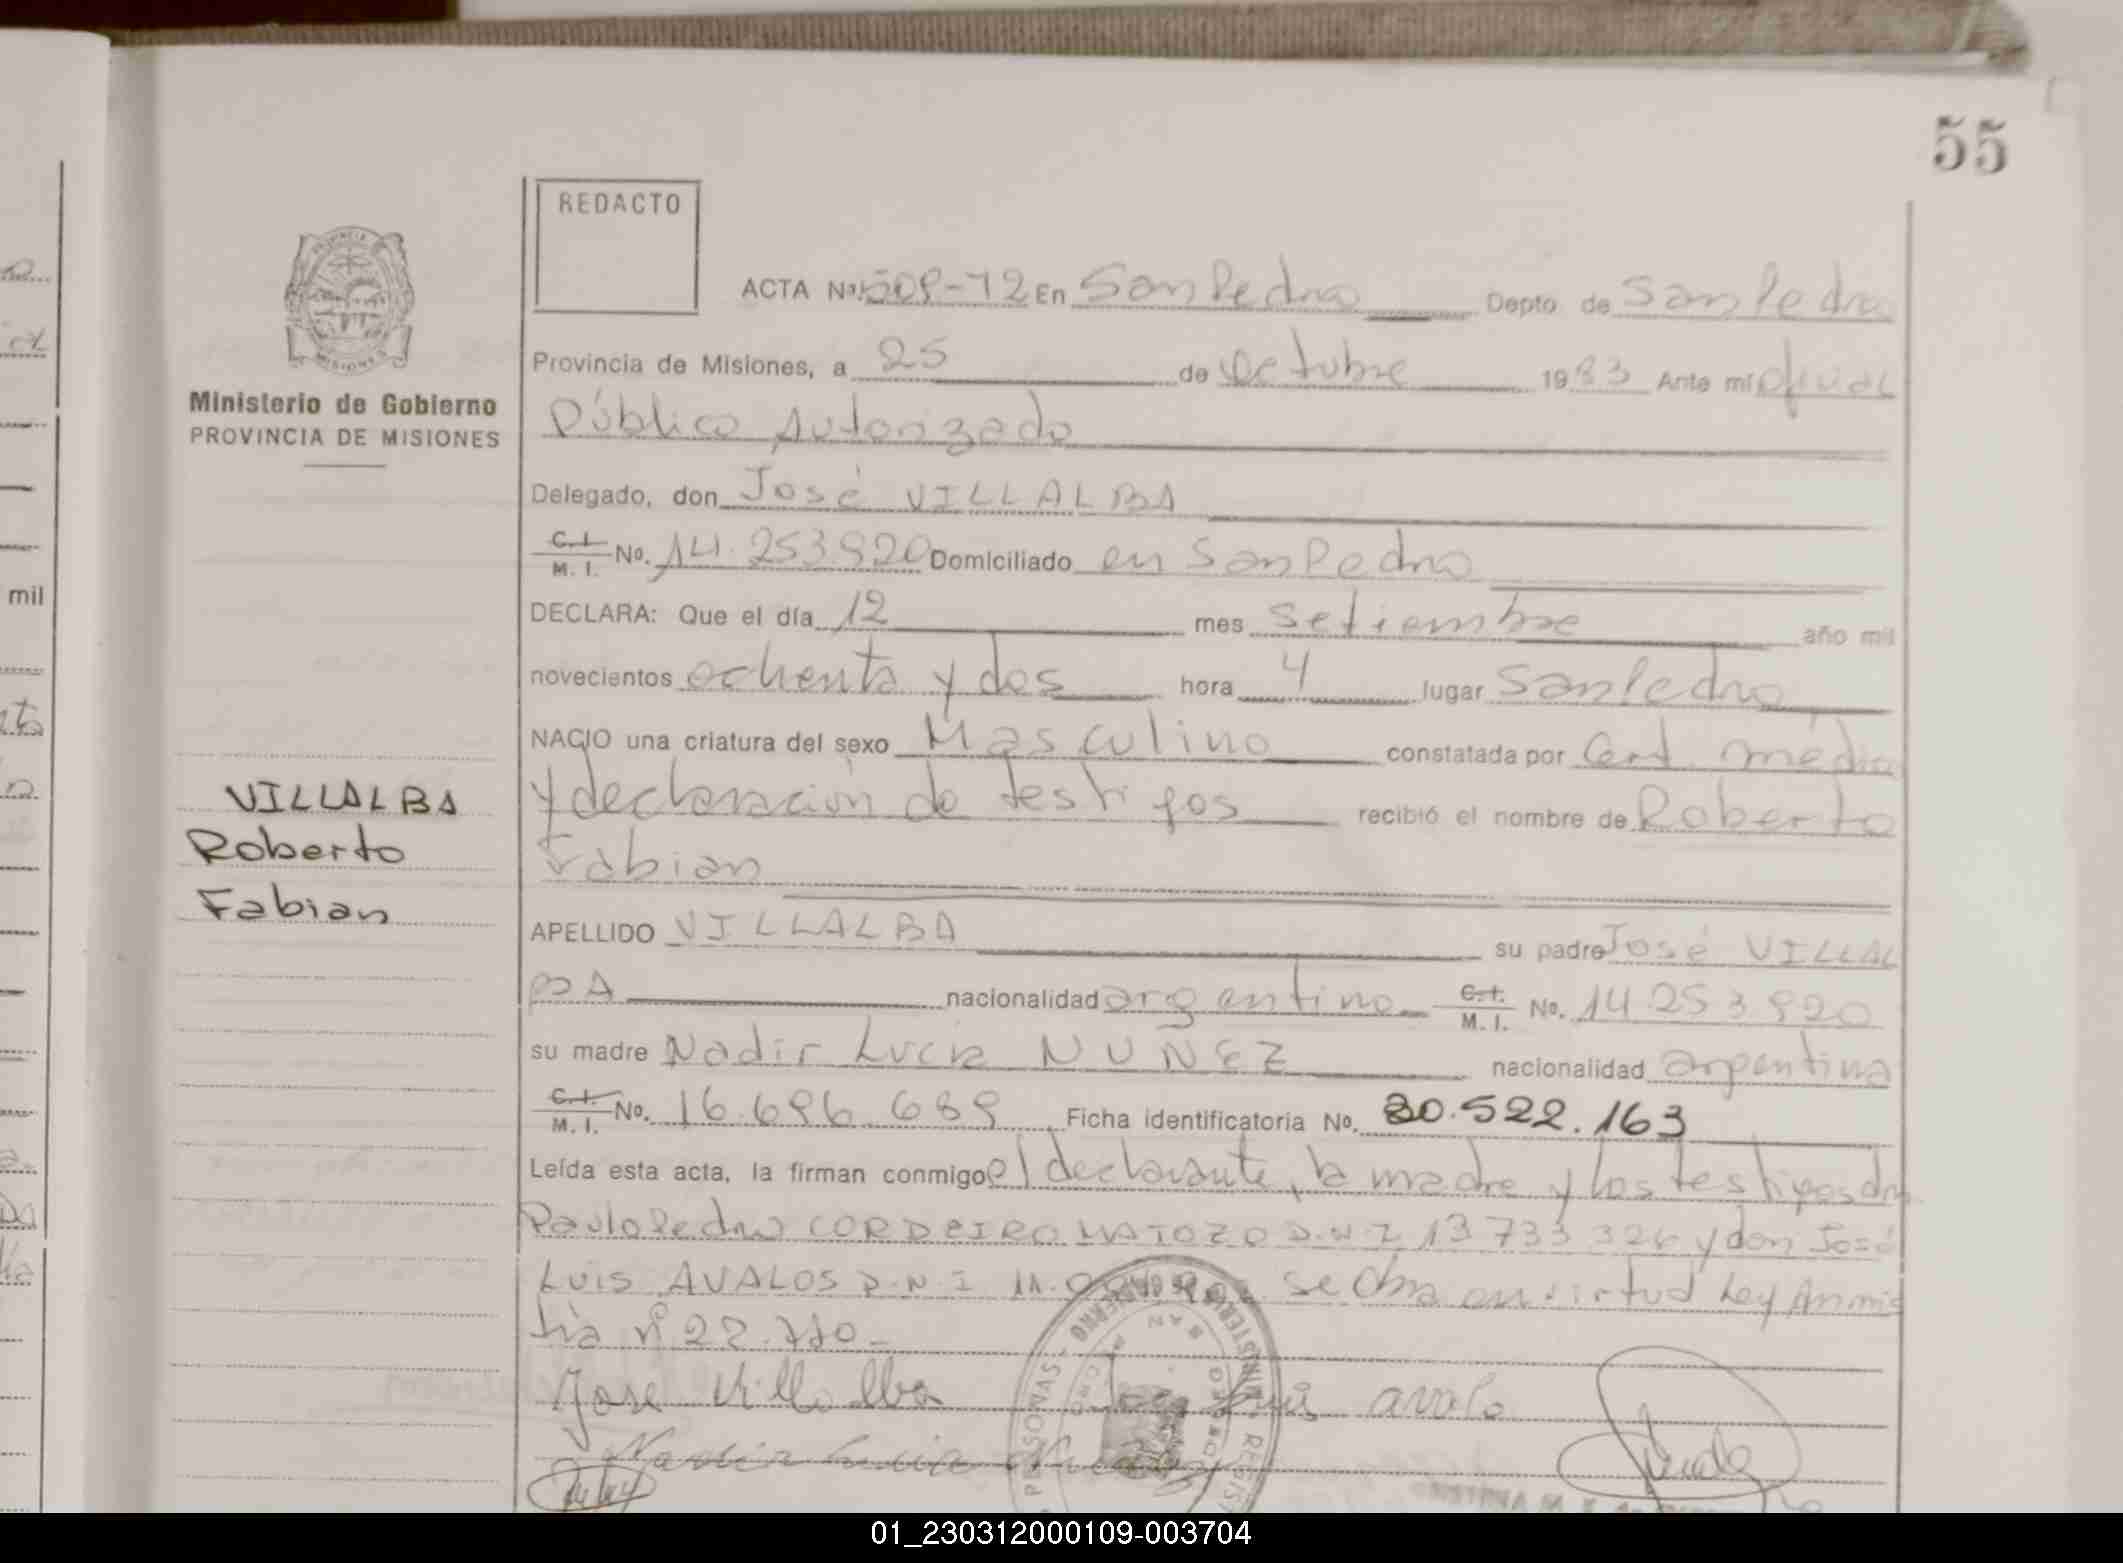 55
REDACTO
ACTA Nº 509-72 En San Pedro Depto de San Pedro
Provincia de Misiones, a 25 de Octubre 1983 Ante mí Oficial
Público Autorizado
Ministerio de Gobierno
PROVINCIA DE MISIONES
Delegado, don José VILLALBA
C.I. M.I. No. 14.253.920 Domiciliado en San Pedro
DECLARA: Que el día 12 mes setiembre año mil
novecientos ochenta y dos hora 4 lugar San Pedro
NACIO una criatura del sexo Masculino constatada por Cert. médico
y declaración de testigos recibió el nombre de Roberto
Fabian
VILLALBA
Roberto
Fabian
APELLIDO VILLALBA su padre José VILLAL
BA nacionalidad argentino C.I. M.I. No. 14.253.920
su madre Nadir Lucia NUÑEZ nacionalidad argentina
C.I. M.I. No. 16.696.689 Ficha identificatoria No. 30.522.163
Leída esta acta, la firman conmigo el declarante, la madre y los testigos don
Paulo Pedro CORDEIRO MATOZO D.N.I 13 733 326 y don José
LUIS AVALOS D.N.I 11. se labra en virtud Ley Amnis
tía nº 22.770.-
José Villalba Luis avalo
mil
01_230312000109-003704